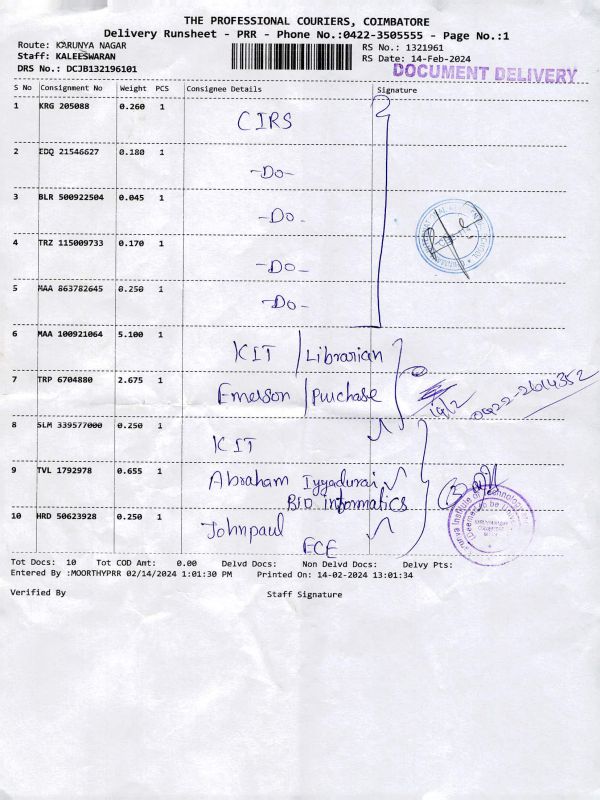 THE PROFESSIONAL COURIERS, COIMBATORE
Delivery Runsheet - PRR - Phone No.:0422-3505555 - Page No.:1
Route: KARUNYA NAGAR
RS No.: 1321961
Staff: KALEESWARAN
RS Date: 14-Feb-2024
DRS No.: DCJB132196101
DOCUMENT DELIVERY
S No Consignment No Weight PCS Consignee Details Signature
1 KRG 205088 0.260 1 CIRS
2 EDQ 21546627 0.180 1 -Do-
3 BLR 500922504 0.045 1 -Do-
4 TRZ 115009733 0.170 1 -Do-
5 MAA 863782645 0.250 1 -Do-
6 MAA 100921064 5.100 1 KIT / Librarian
7 TRP 6704880 2.675 1 Emerson / Purchase
14/2 0422-2614352
8 SLM 339577000 0.250 1 KIT
9 TVL 1792978 0.655 1 Abraham Iyyadurai
BIO informatics
10 HRD 50623928 0.250 1 Johnpaul
ECE
Institute of Technology
Deemed to be
Tot Docs: 10 Tot COD Amt: 0.00 Delvd Docs: Non Delvd Docs: Delvy Pts:
Entered By :MOORTHYPRR 02/14/2024 1:01:30 PM Printed On: 14-02-2024 13:01:34
Verified By Staff Signature